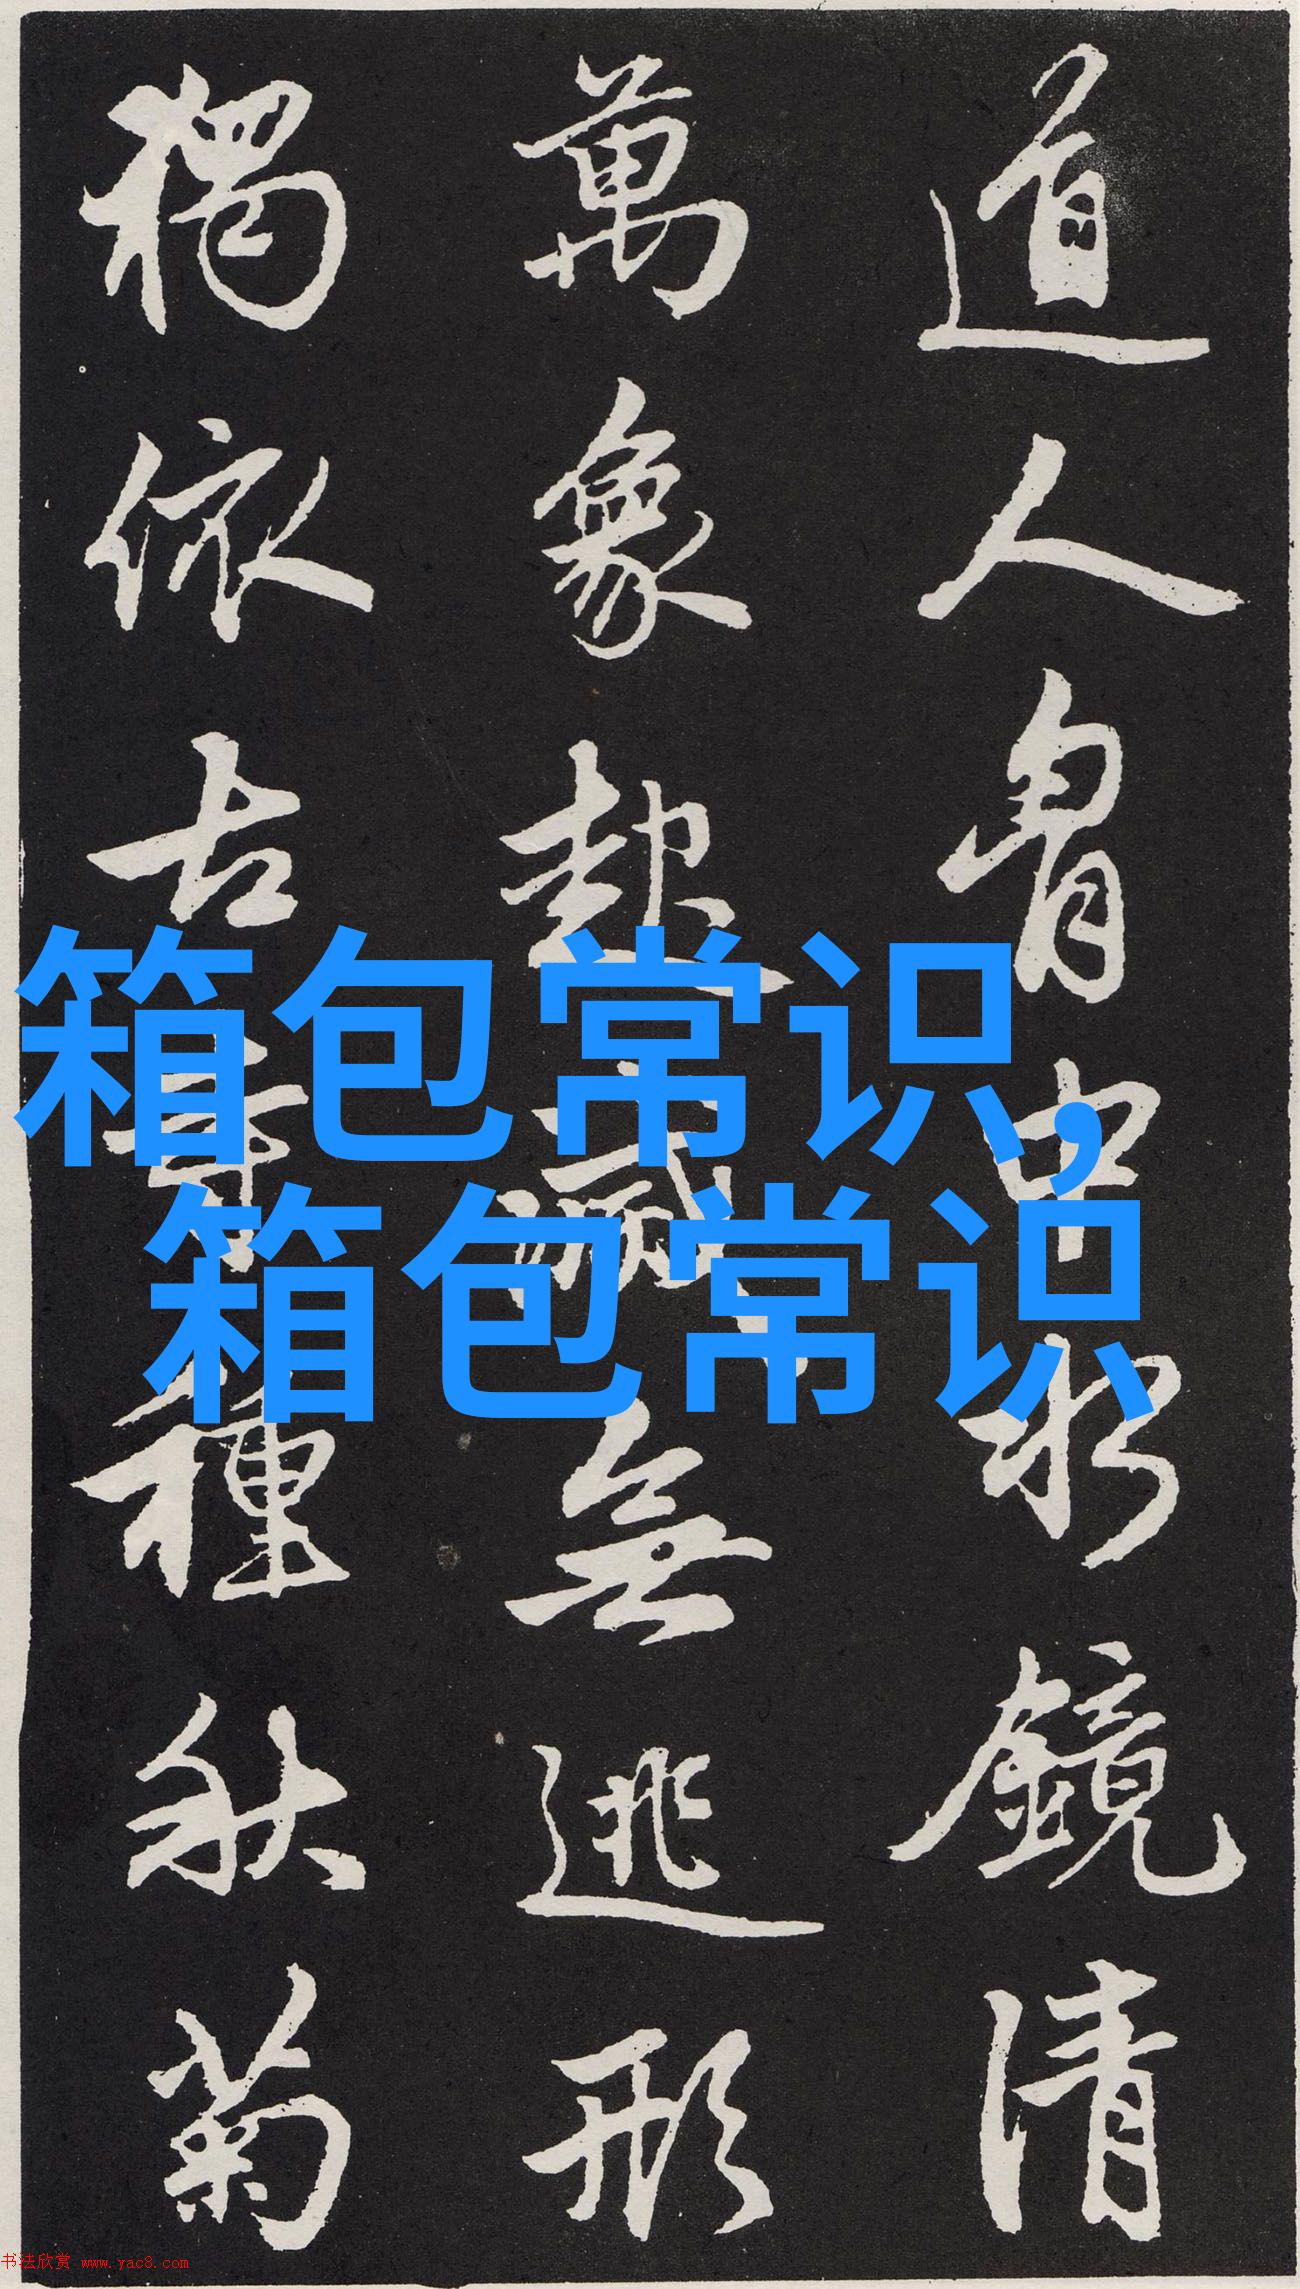 道人胷中水鏡清
萬象起滅無逃形
獨依古寺種秋菊
箱包常识,
箱包常识
书法欣赏 www.yac8.com